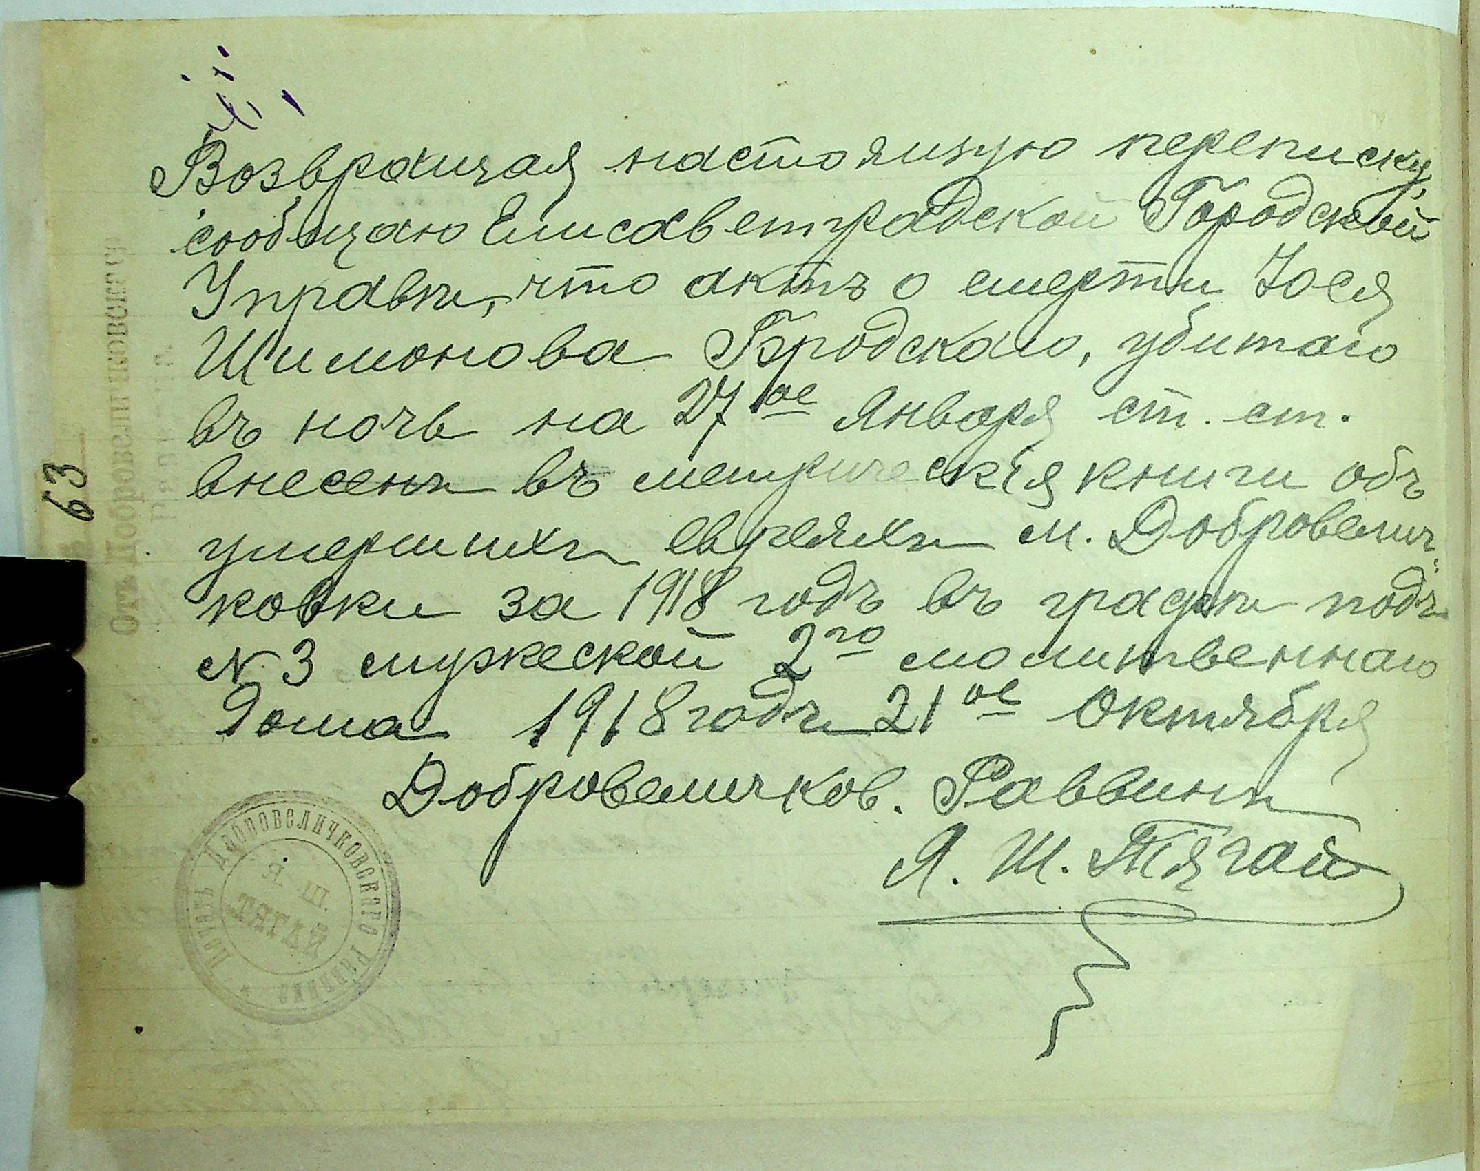 Возвращая настоящую переписку,
сообщаю Елисаветградской Городской
Управѣ, что актъ о смерти Іося
Шимонова Бродскаго, убитаго
въ ночь на 27ое Января ст. ст.
внесенъ въ метрическія книги объ
умершихъ евреяхъ м. Добровелич-
ковки за 1918 годъ въ графѣ подъ
№ 3 мужеской 2го молитвеннаго
дома 1918 годъ 21ое Октября
Добровеличков. Раввинъ
Я. Ш. Тягай
63
Отъ Добровеличковскаго
Раввина
Печать Добровеличковскаго Раввина
Я. Ш.
ТЯГАЙ